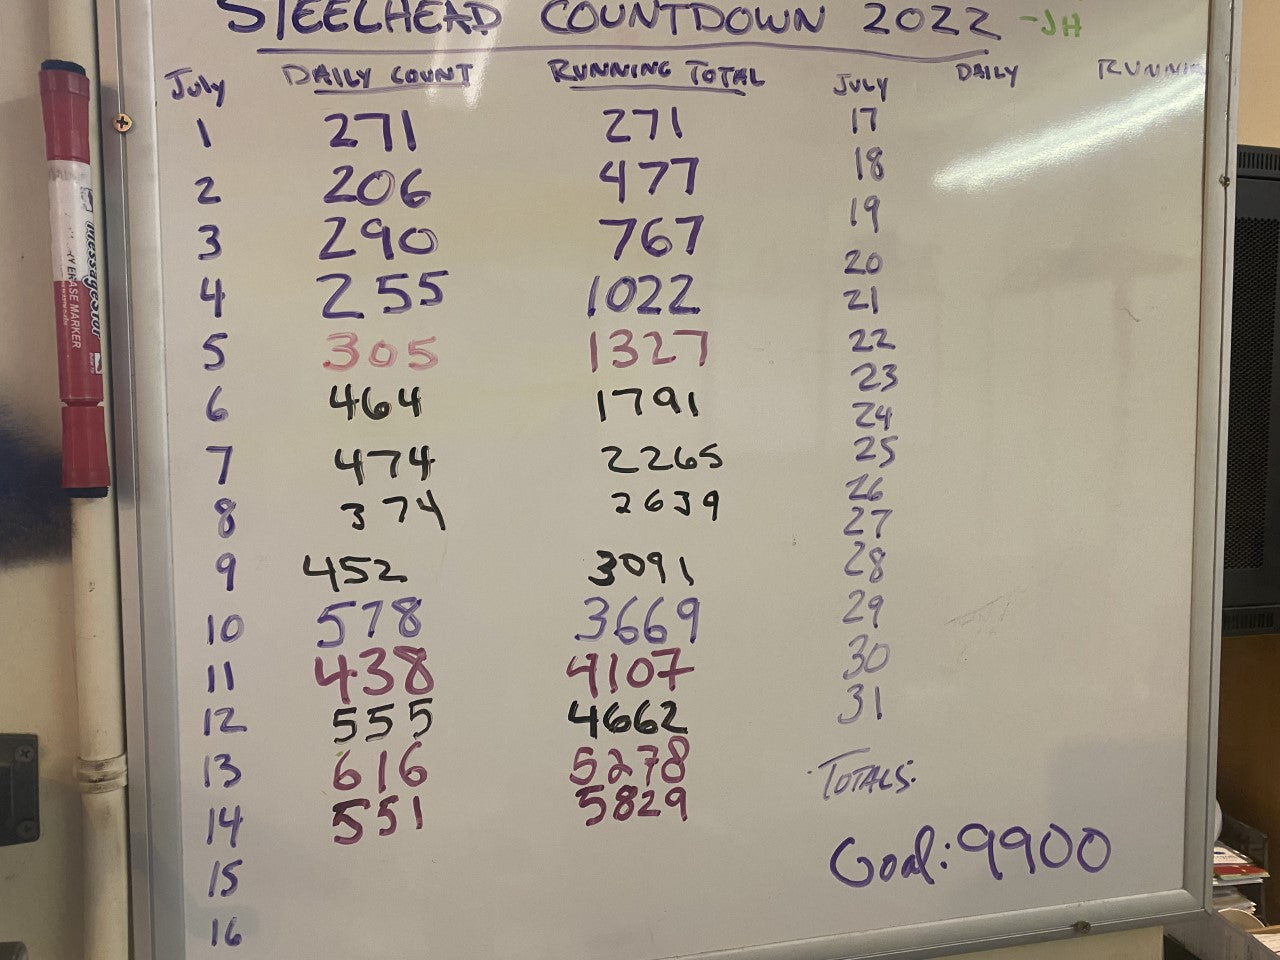 STEELHEAD COUNTDOWN 2022 -JH
July DAILY COUNT RUNNING TOTAL JULY DAILY
1 271 271 17
2 206 477 18
3 290 767 19
4 255 1022 20
5 305 1327 21
6 464 1791 22
7 474 2265 23
8 374 2639 24
9 452 3091 25
10 578 3669 26
11 438 4107 27
12 555 4662 28
13 616 5278 29
14 551 5829 30
15 31
16
TOTALS:
Goal: 9900
messagestor
ERASE MARKER